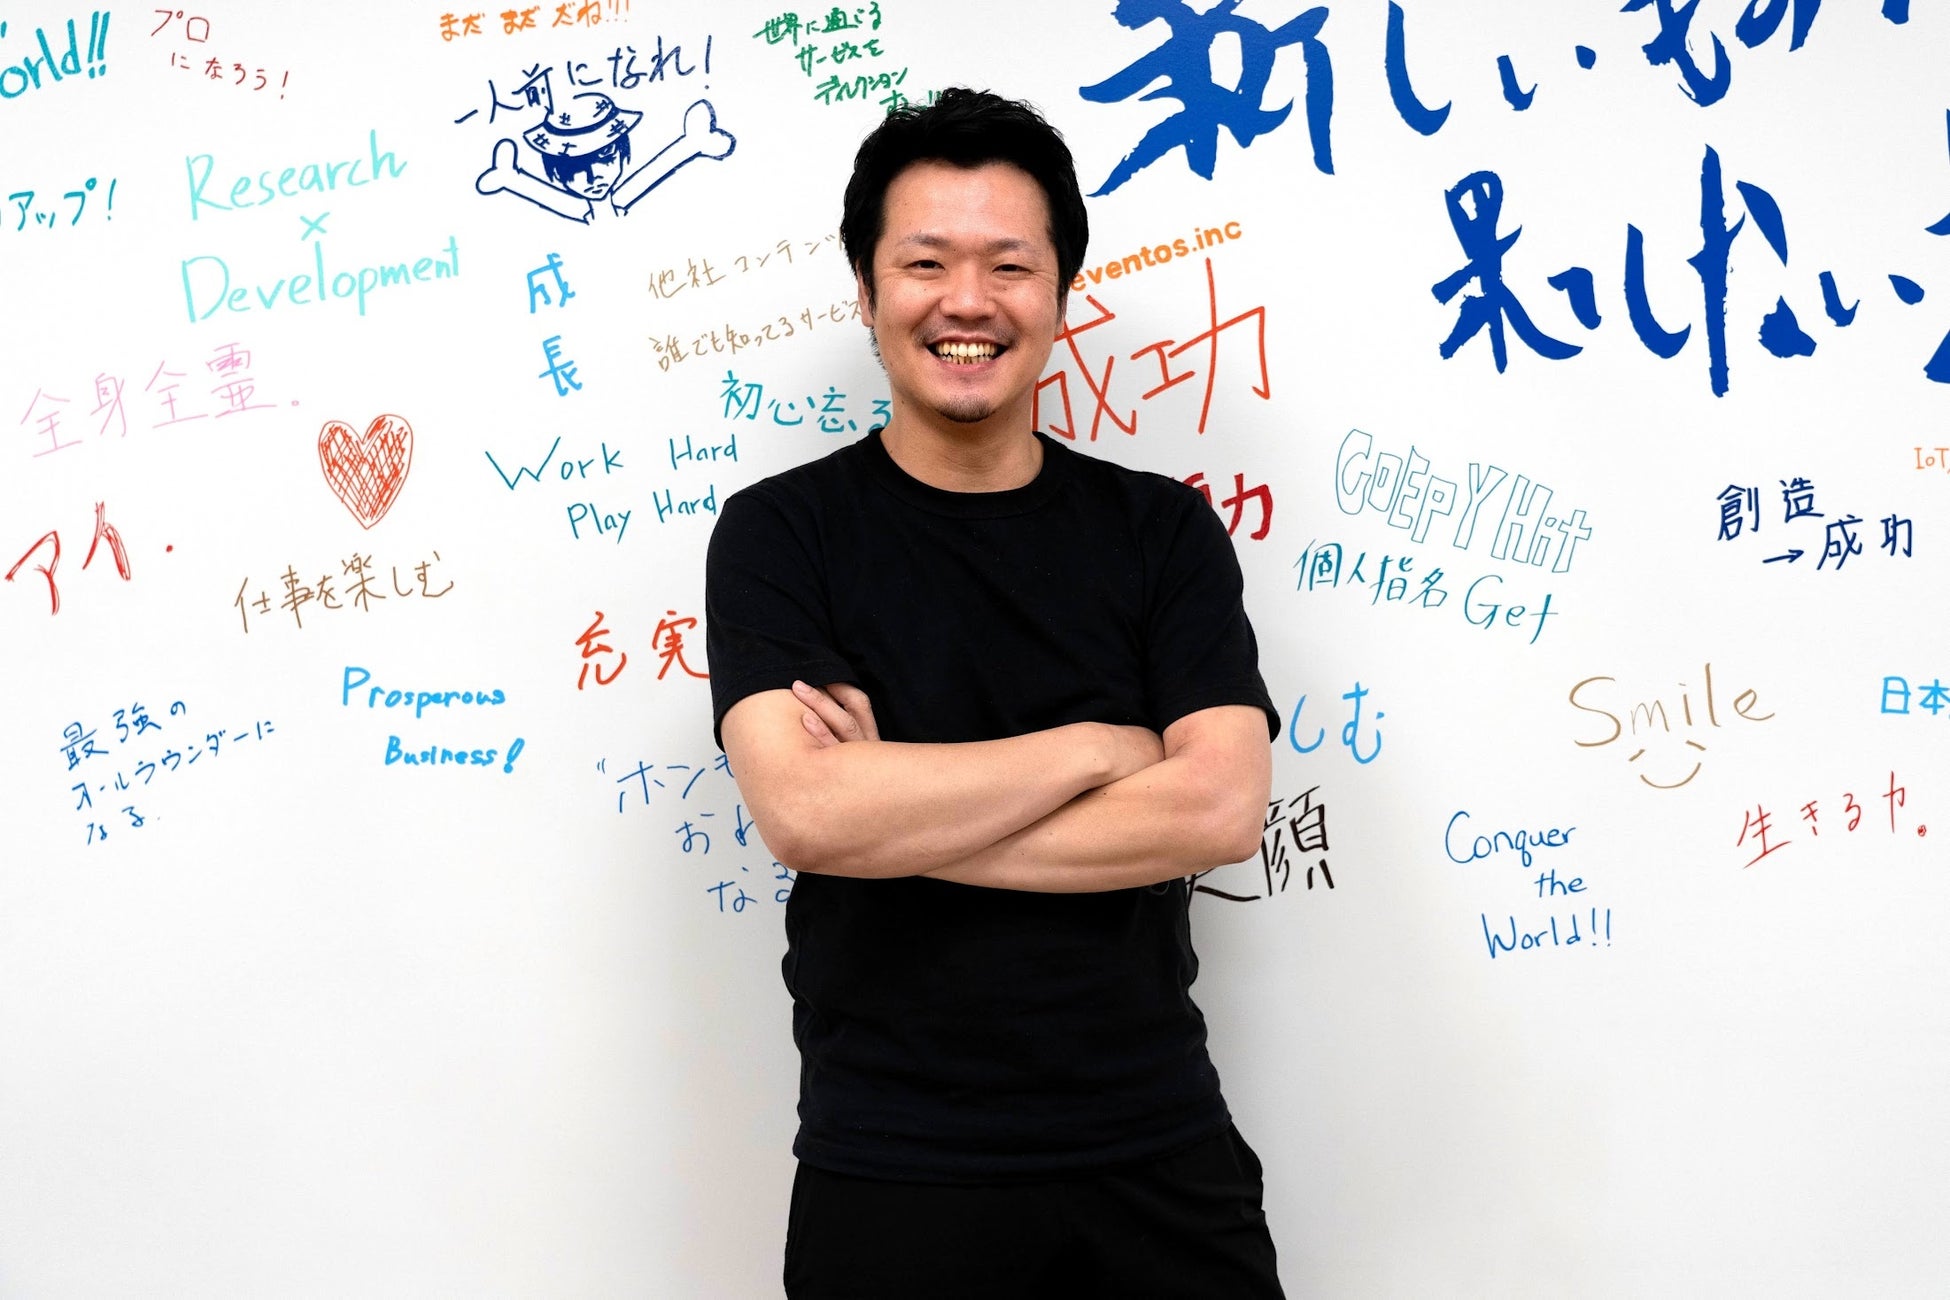 World!!
プロ
になろう!
まだ まだ だね!!!
一人前になれ!
世界に通じる
サービスを
ディレクション
アップ!
Research
×
Development
新しいもの
果てしない
eventos.inc
成長
他社 コンテンツ
誰でも知ってるサービス
初心忘る
成功
全身全霊。
Work Hard
Play Hard
力
GOEPPY Hit
個人指名 Get
IoT
創造
→成功
アイ.
仕事を楽しむ
充実
Prosperous
Business!
最強の
オールラウンダーに
なる.
"ホンモ
お
なる
しむ
顔
Smile
日本
生きる力。
Conquer
the
World!!